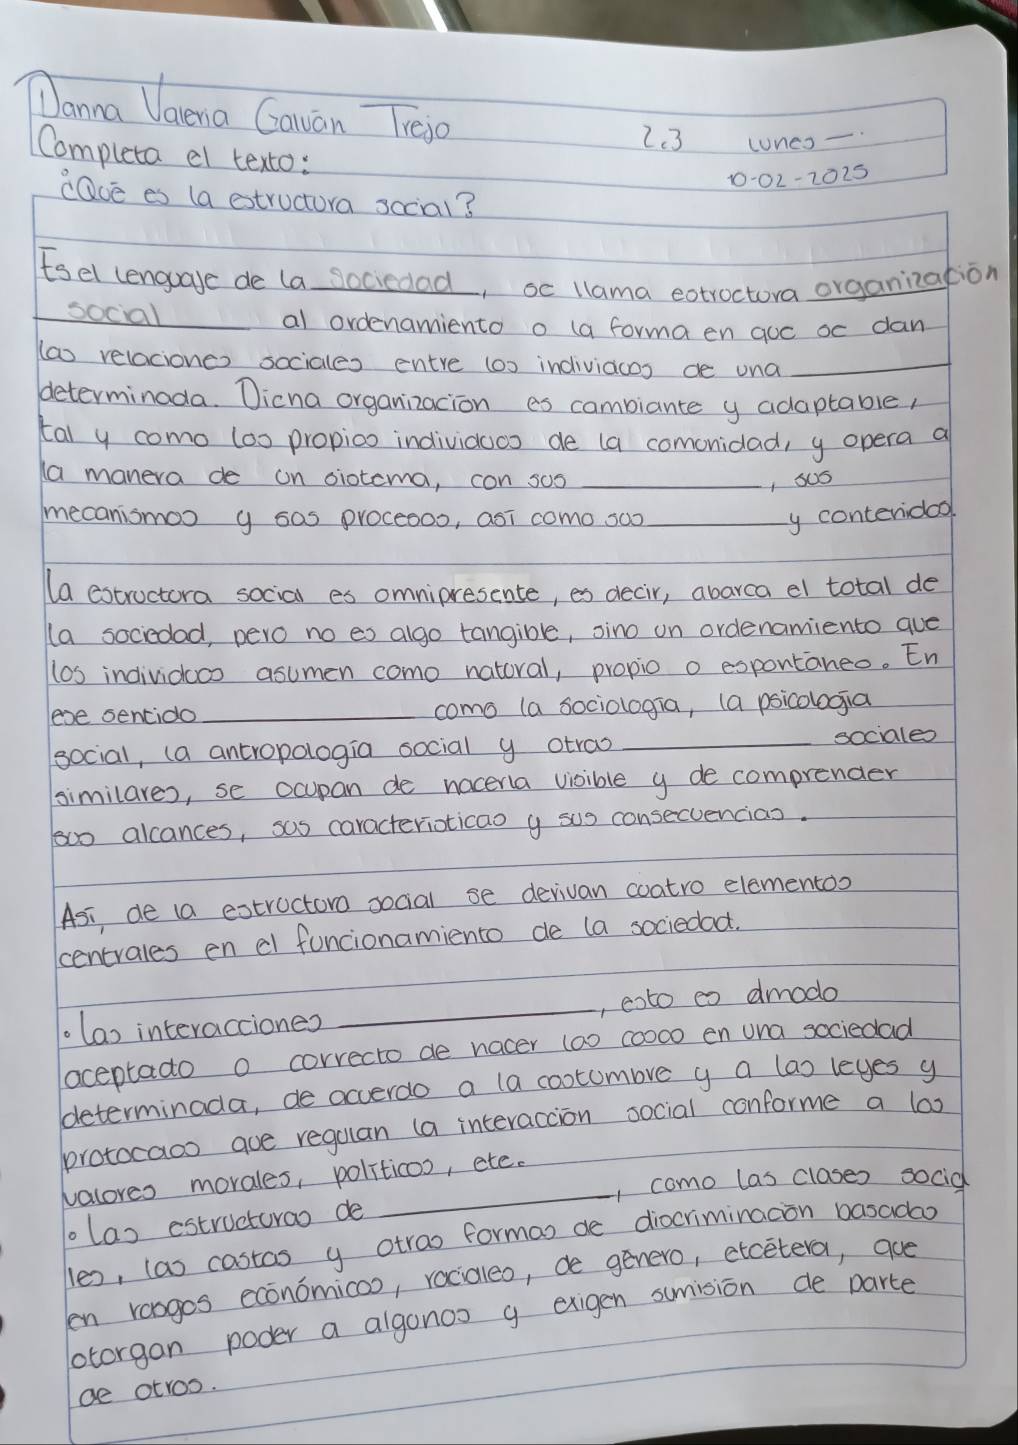 Danna Valeria Galván Trejo
2.3 lunes
Completa el texto:
10-02-2025
¿Qué es la estructura social?
Es el lenguaje de la sociedad, se llama estructura organización
social al ordenamiento o la forma en que se dan
las relaciones sociales entre los individuos de una ________
determinada. Dicha organización es cambiante y adaptable,
tal y como los propios individuos de la comunidad, y opera a
la manera de un sistema, con sus ________, sus
mecanismos y sus procesos, así como sus ________ y contenidos.
La estructura social es omnipresente, es decir, abarca el total de
la sociedad, pero no es algo tangible, sino un ordenamiento que
los individuos asumen como natural, propio o espontáneo. En
ese sentido ________ como la sociología, la psicología
social, la antropología social y otras ________ sociales
similares, se ocupan de hacerla visible y de comprender
sus alcances, sus características y sus consecuencias.
Así, de la estructura social se derivan cuatro elementos
centrales en el funcionamiento de la sociedad.
• las interacciones ________, esto es dmodo
aceptado o correcto de hacer las cosas en una sociedad
determinada, de acuerdo a la costumbre y a las leyes y
protocolos que regulan la interacción social conforme a los
valores morales, políticos, etc.
• las estructuras de ________, como las clases socia
les, las castas y otras formas de discriminación basadas
en rasgos económicos, raciales, de género, etcétera, que
otorgan poder a algunos y exigen sumisión de parte
de otros.